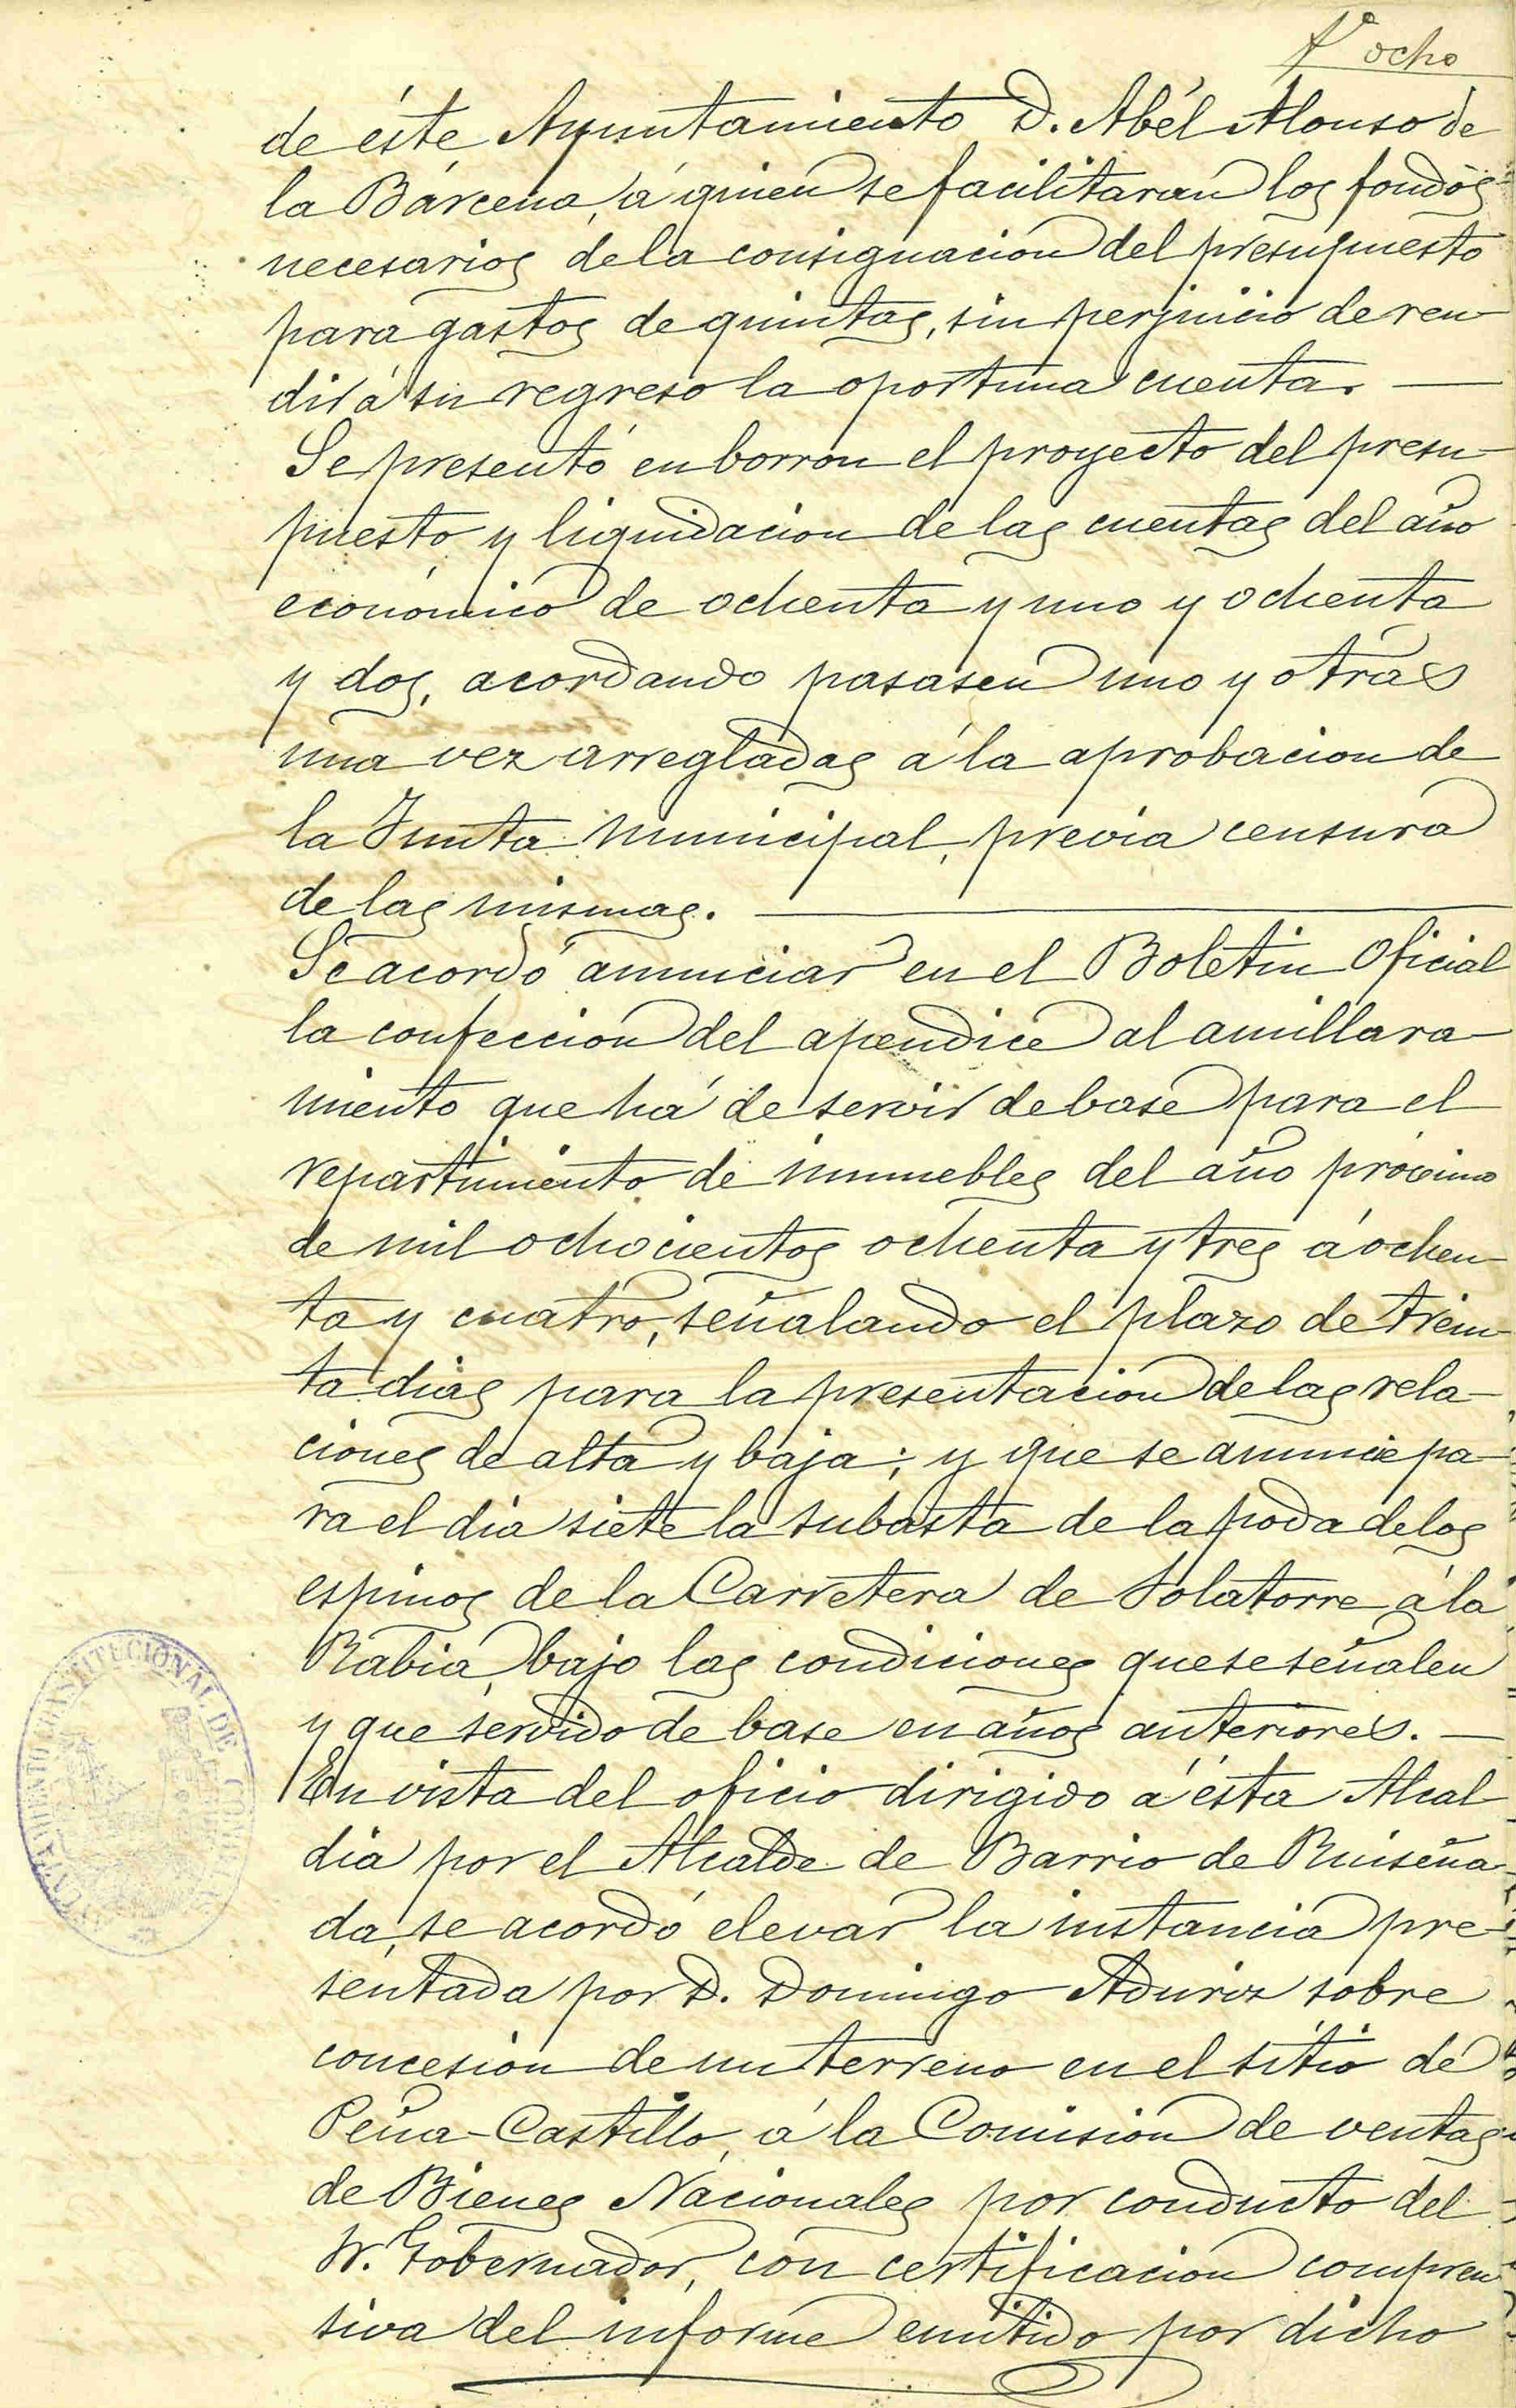 fº ocho
de éste Ayuntamiento D. Abél Alonso de
la Bárcena, á quien se facilitaran los fondos
necesarios de la consignacion del presupuesto
para gastos de quintas, sin perjuicio de ren-
dir á su regreso la oportuna cuenta. —
Se presentó en borron el proyecto del presu-
puesto y liquidacion de las cuentas del año
económico de ochenta y uno y ochenta
y dos, acordando pasasen uno y otras
una vez arregladas á la aprobacion de
la Junta municipal, previa censura
de las mismas. —
Se acordó anunciar en el Boletin Oficial
la confeccion del apendice al amillara-
miento que há de servir de base para el
repartimiento de inmuebles del año próximo
de mil ochocientos ochenta y tres á ochen-
ta y cuatro, señalando el plazo de trein-
ta dias para la presentacion de las rela-
ciones de alta y baja; y que se anuncie pa-
ra el dia siete la subasta de la poda de los
espinos de la Carretera de Solatorre á la
Rabia, bajo las condiciones que se señalen
y que servido de base en años anteriores. —
En vista del oficio dirigido á ésta Alcal
dia por el Alcalde de Barrio de Ruiseña-
da, se acordó elevar la instancia pre-
sentada por D. Domingo Aduriz sobre
concesion de un terreno en el sitio de
Peña-Castillo, á la Comision de ventas
de Bienes Nacionales por conducto del
Sr. Gobernador, con certificacion compren
siva del informe emitido por dicho
AYUNTAMIENTO CONSTITUCIONAL DE